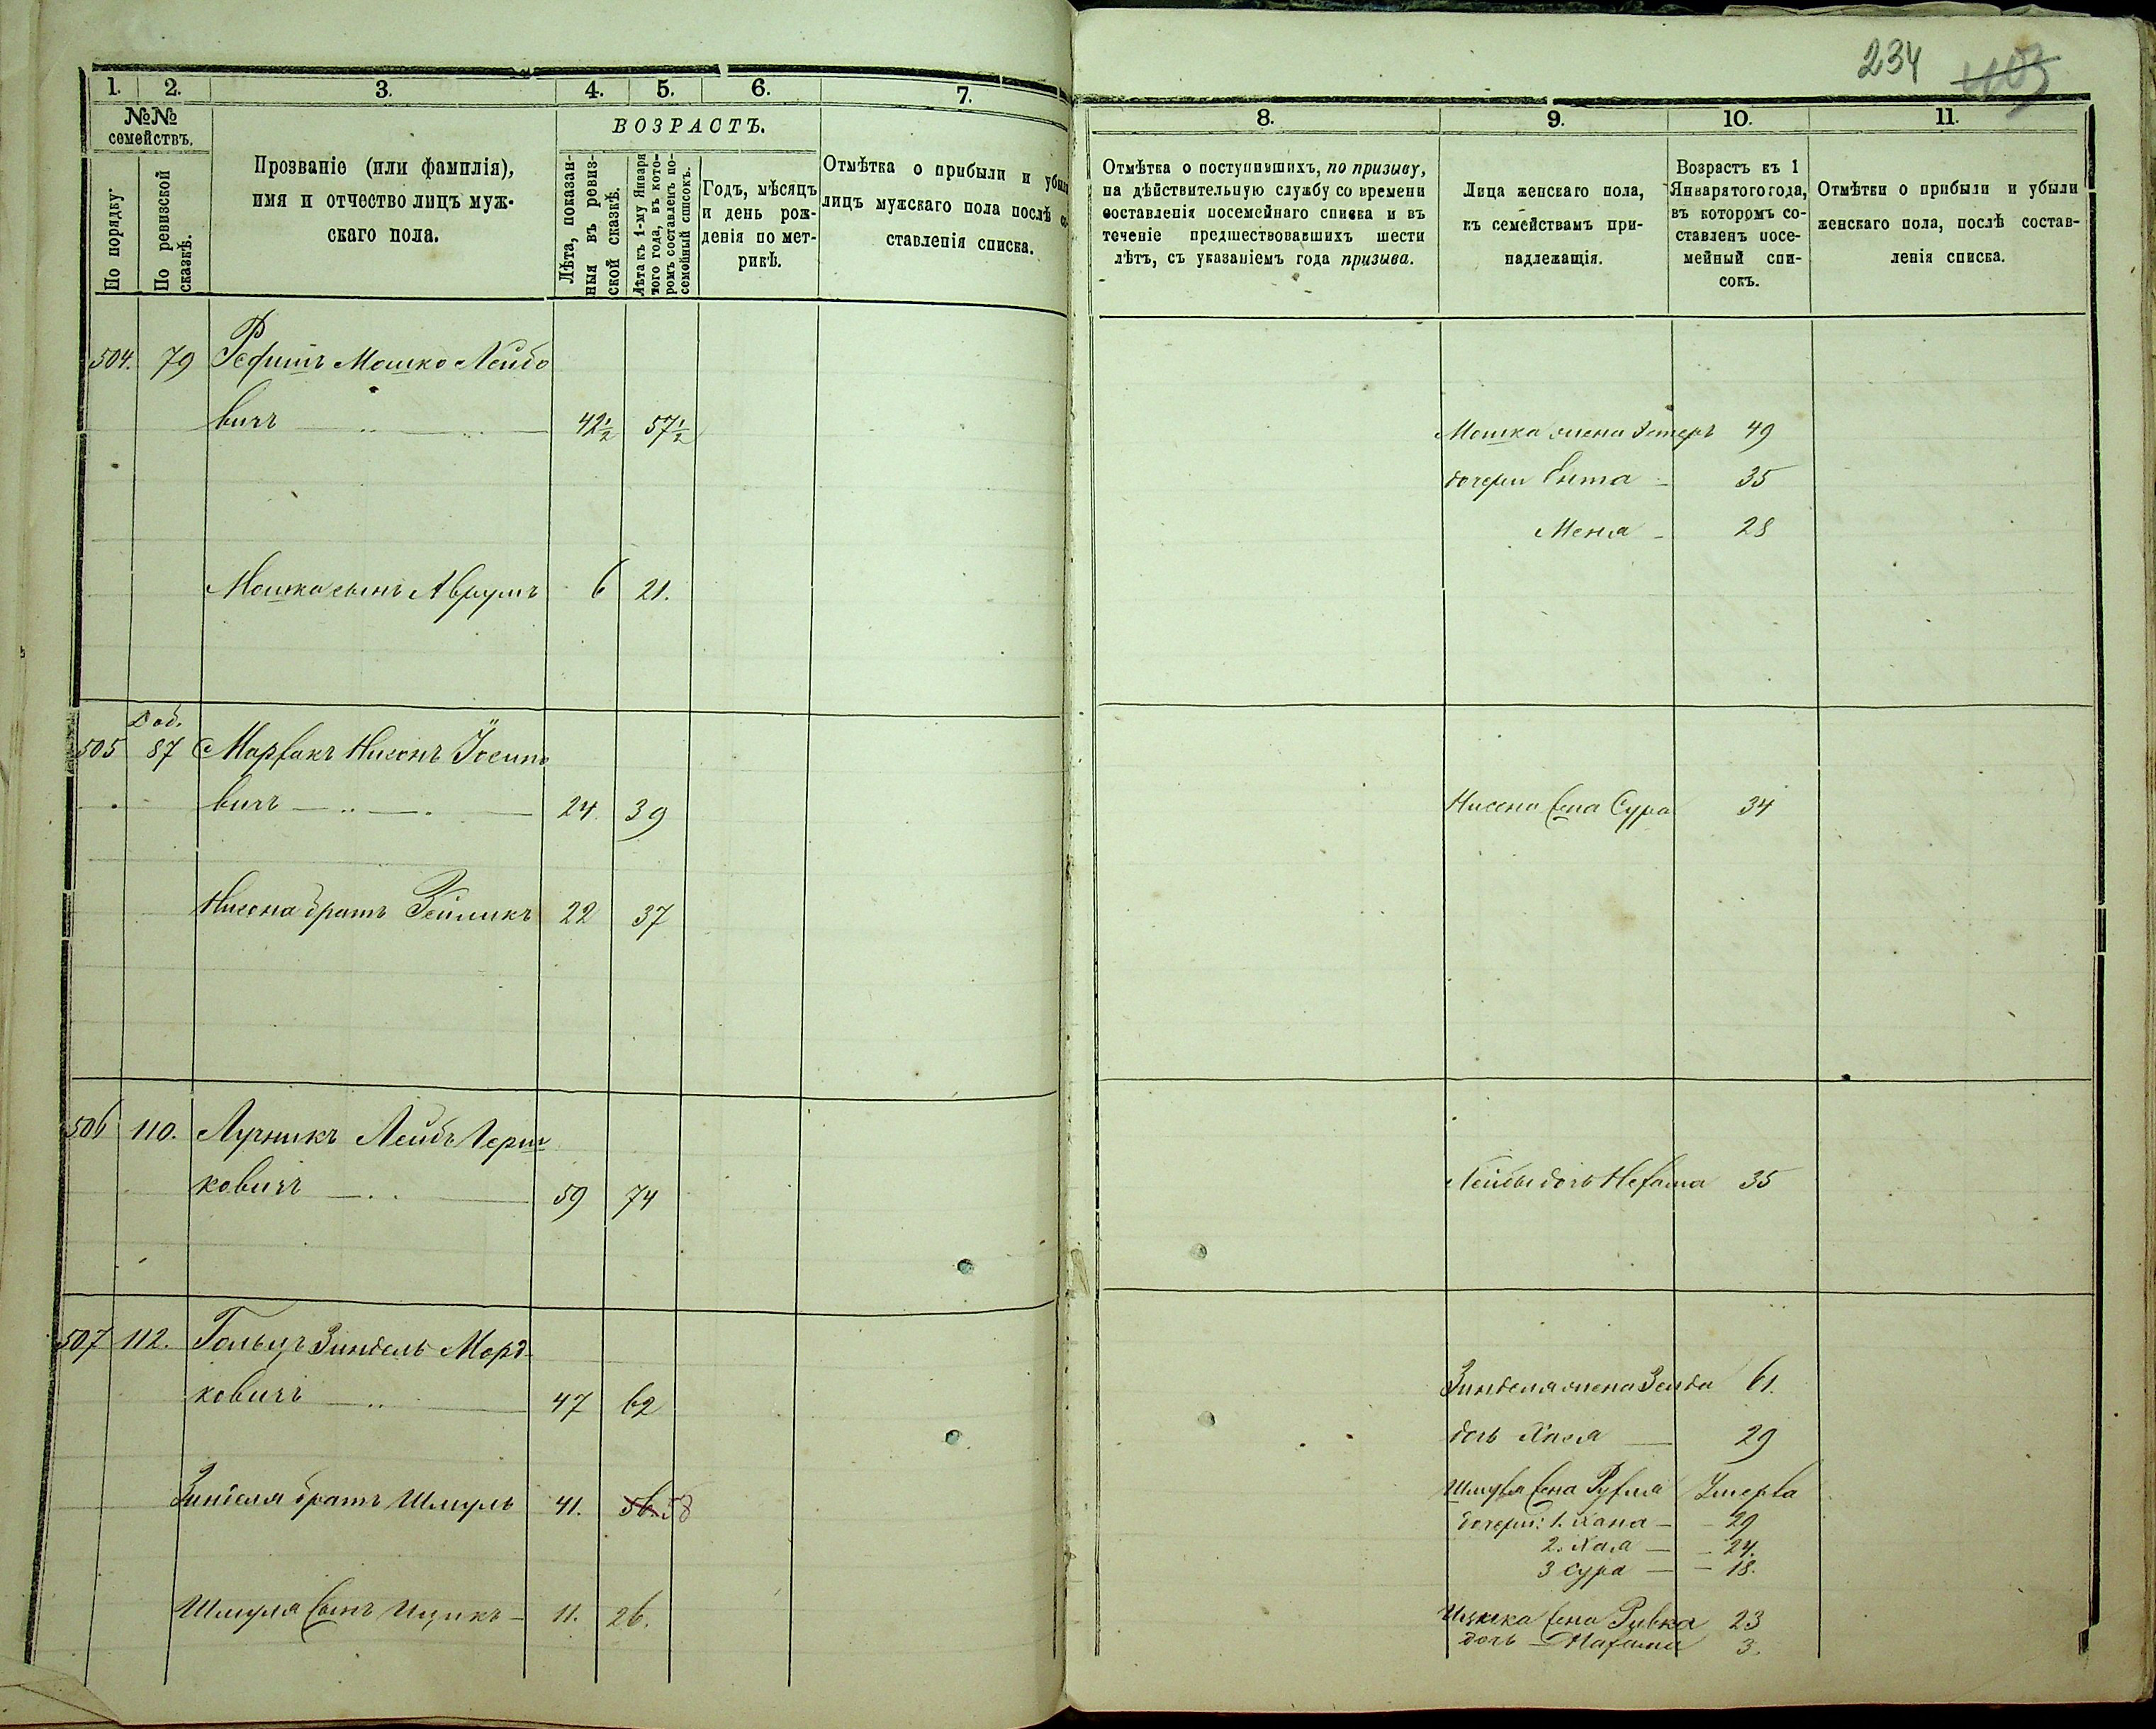 234
403
1. 2. 3. 4. 5. 6. 7.
№№ семействъ.
По порядку
По ревизской сказкѣ.
Прозваніе (или фамилія),
имя и отчество лицъ муж-
скаго пола.
ВОЗРАСТЪ.
Лѣта, показан-
ныя въ ревиз-
ской сказкѣ.
Лѣта къ 1-му Января
того года, въ кото-
ромъ составленъ по-
семейный списокъ.
Годъ, мѣсяцъ
и день рож-
денія по мет-
рикѣ.
Отмѣтка о прибыли и убыли
лицъ мужскаго пола послѣ со-
ставленія списка.
504. 79 Мошко Лейбо
вичъ 42½ 57½
Мошка сынъ Аврумъ 6 21.
Доб.
505 87 Нисонъ Іосипо
вичъ 24. 39
Нисона братъ Зейликъ 22 37
506 110. Лучникъ Лейбъ Герш
ковичъ 59 74
507 112. Гольцъ Зиндель Морд-
ковичъ 47 62
Зинделя братъ Шмуль 41. 56 58
Шмуля сынъ Ицикъ 11. 26.
8. 9. 10. 11.
Отмѣтка о поступившихъ, по призыву,
на дѣйствительную службу со времени
составленія посемейнаго списка и въ
теченіе предшествовавшихъ шести
лѣтъ, съ указаніемъ года призыва.
Лица женскаго пола,
къ семействамъ при-
надлежащія.
Возрастъ къ 1
Января того года,
въ которомъ со-
ставленъ посе-
мейный спи-
сокъ.
Отмѣтки о прибыли и убыли
женскаго пола, послѣ состав-
ленія списка.
Мошка жена Эстеръ 49
дочери Ента 35
Меня 28
Нисона жена Сура 34
Лейбы дочь Нехама 35
Зинделя жена Зелда 61.
дочь Хася 29
Шмуля жена Рухля Умерла
дочери: 1. Хана 29
2. Хая 24.
3 Сура 18.
Ицика жена Ривка 23
дочь 3.